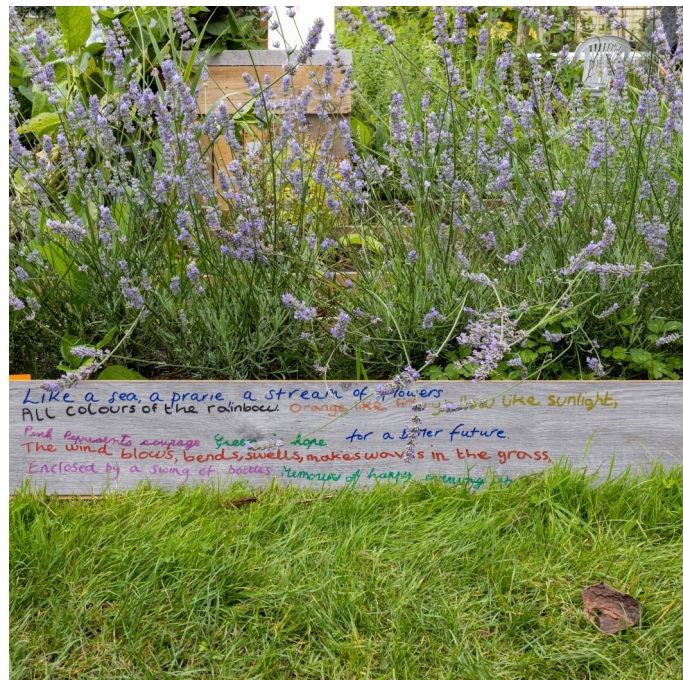 Like a sea, a prarie a stream of flowers
ALL Colours of the rainbow. Orange like yellow like sunlight,
Pink Represents courage Green hope for a better future.
The wind blows, bends, swells, makes waves in the grass,
Enclosed by a swing of bottles Memories of happy evening